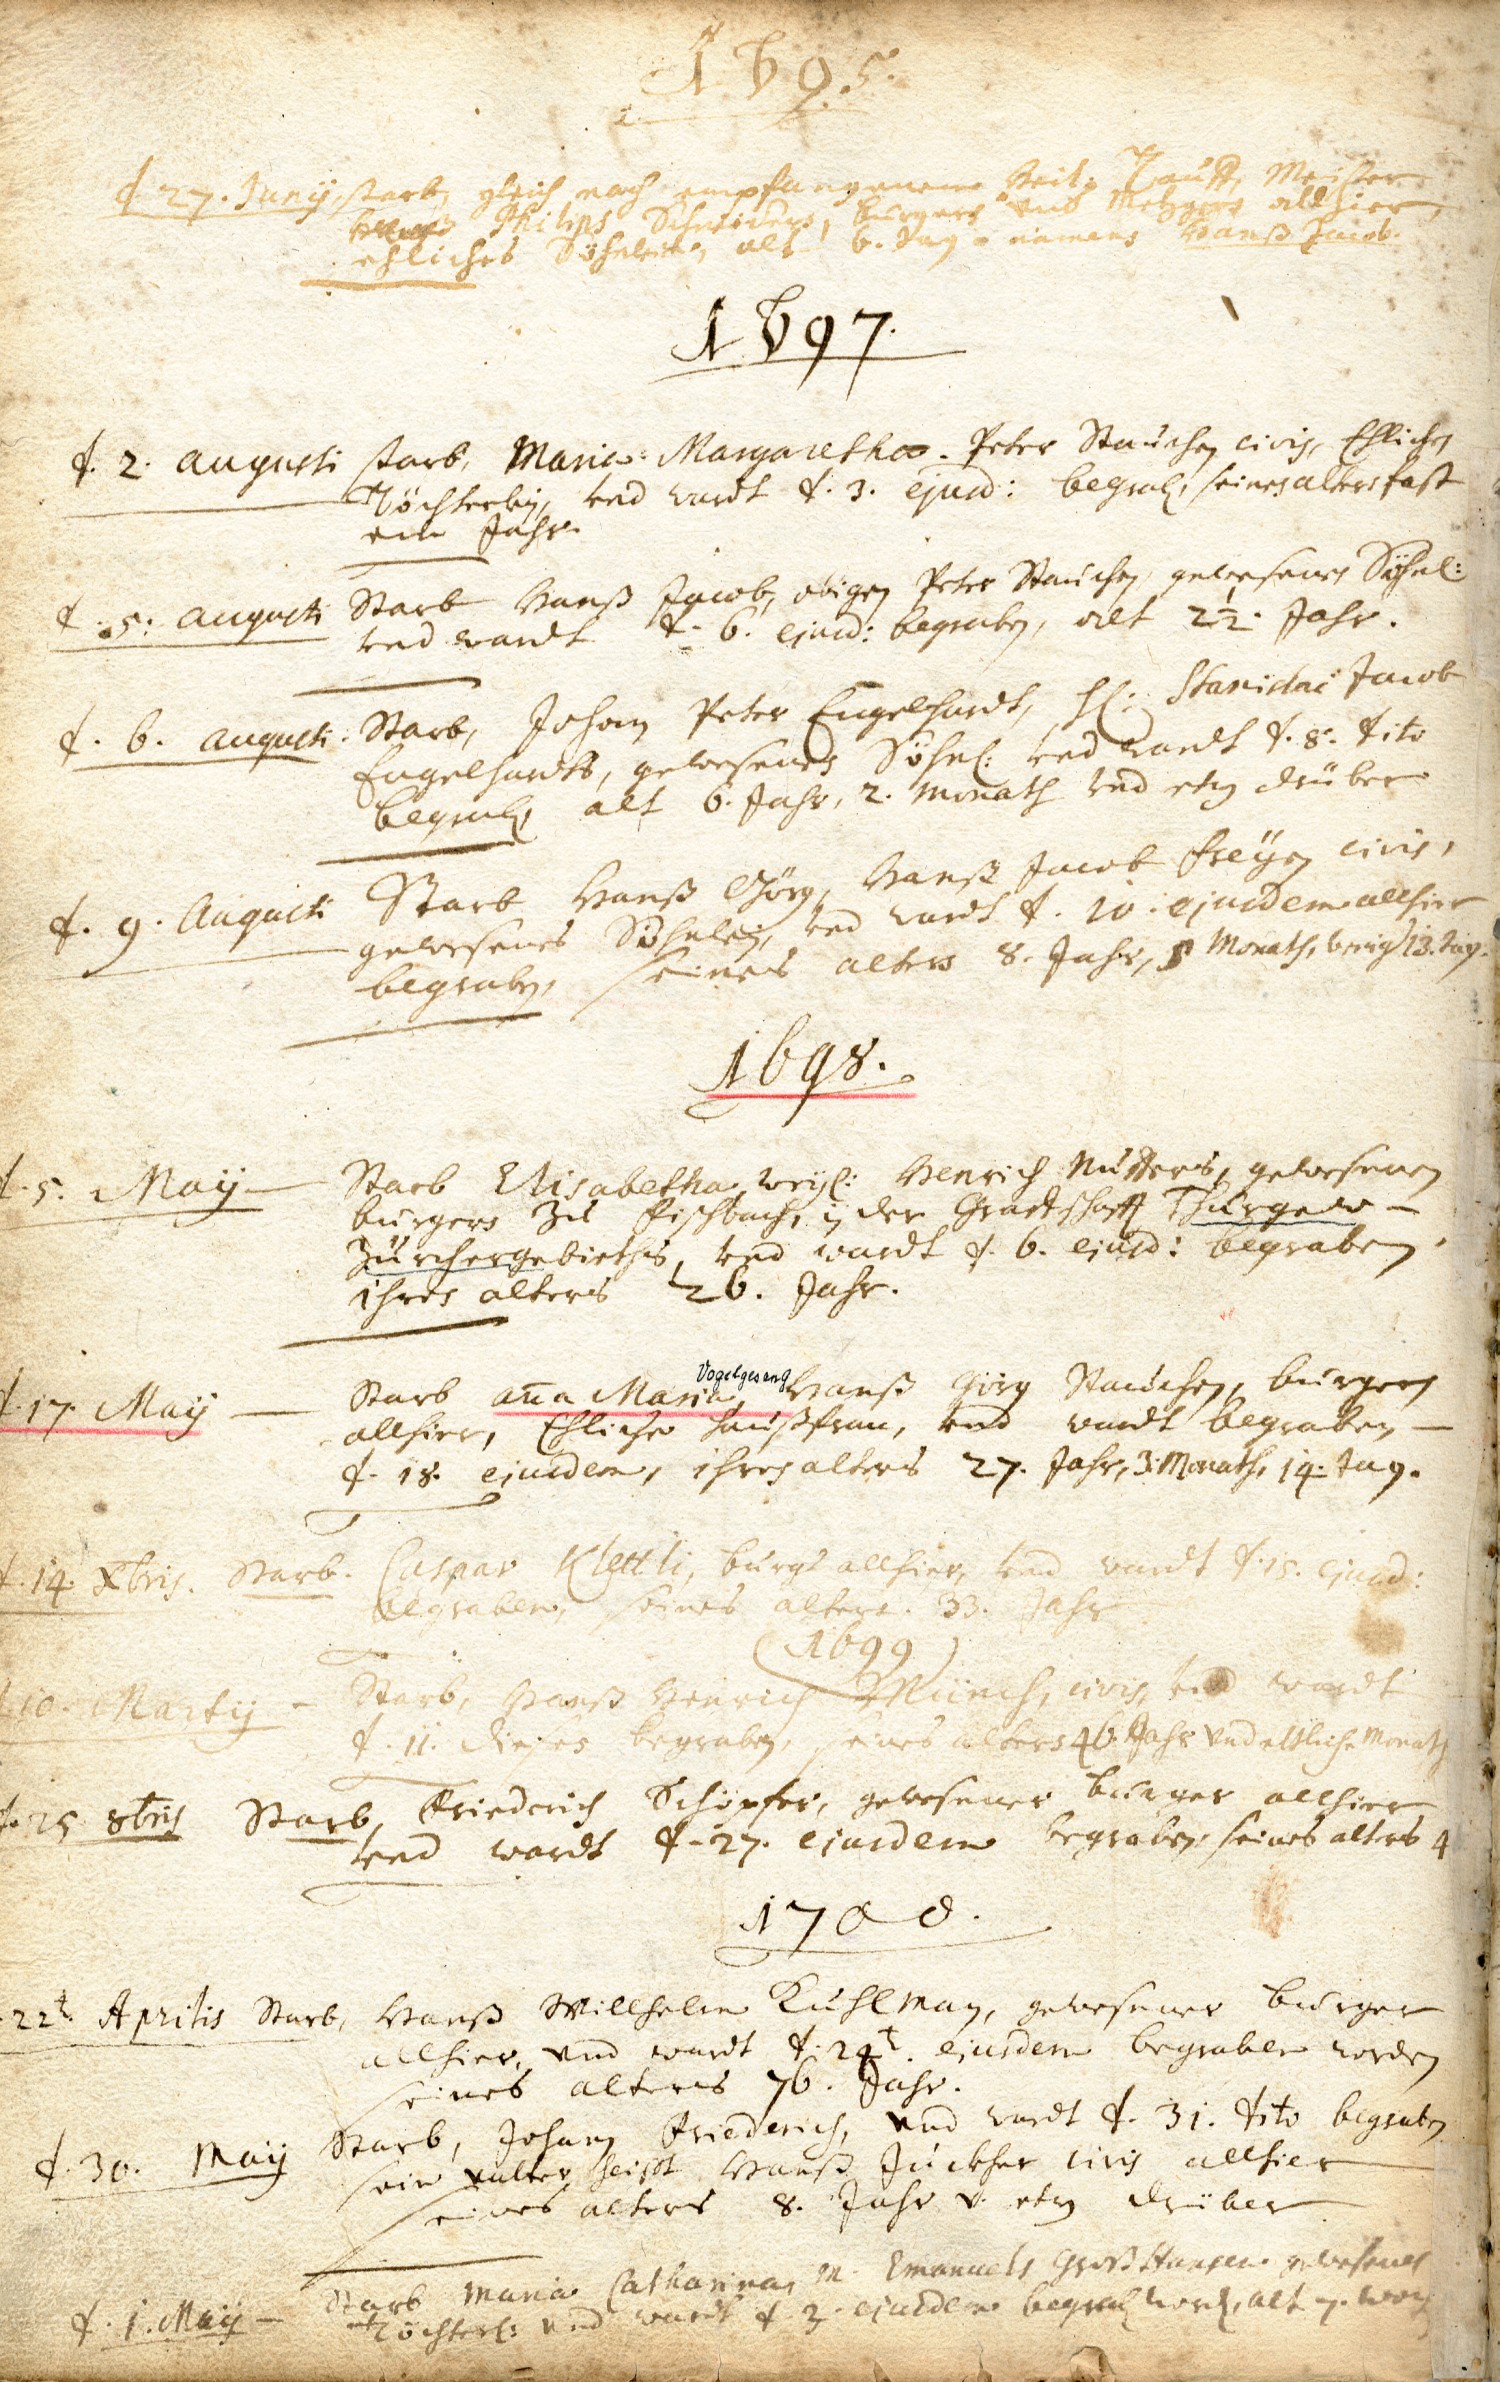 1695.
d. 27. Junij, starb, gleich nach empfangenem heil: Tauff, Meister
Philips Schneiders, burgers und Metzgers allhier,
ehliches Söhnlein, alt 6. Tag. namens Hanß Jacob.
1697.
d. 2. Augusti starb, Maria Margaretha. Peter Stauchen civis, Ehliches
Töchterlin, und wardt d. 3. ejusd: begrab, seines alters fast
ein Jahr.
d. 5: Augusti Starb Hanß Jacob, obigen Peter Stauchen, gewesenes Söhnl:
und wardt d. 6. ejusd: begraben, alt 2½. Jahr.
d. 6. Augusti. Starb, Johan Peter Engelhardt, H: Stanislai Jacob
Engelhardts, gewesenes Söhnl: und wardt d. 8. dito
begrab, alt 6. Jahr, 2. Monath und etw drüber
d. 9. Augusti Starb Hanß Görg, Hanß Jacob Freÿen civis,
gewesenes Söhnlein, und wardt d. 10. ejusdem allhier
begraben, seines alters 8. Jahr, Monath, wenig 13. Tag.
1698.
d. 5. Maij Starb Elisabetha, weyl: Henrich Nutters, gewesenen
burgers zu Fischbach, in der Graffschafft Thurgew
Zürchergebieths, und wardt d. 6. ejusd: begraben
ihres alters 26. Jahr.
Vogelgesang
d. 17. Maij Starb Aña Maria, Hanß Görg Stauchen, burgers
allhier, Ehliche Haußfrau, und wardt begraben
d. 18. ejusdem, ihres alters 27. Jahr, 3. Monath, 14. Tag.
d. 14. Xbris. Starb. Caspar Klettli, burgs allhier, und wardt d. 15. ejusd:
begraben, seines alters. 33. Jahr
1699
d. 10. Martij Starb, Hanß Henrich Münch, civis, und wardt
d. 11. dieses begraben, seines alters 46. Jahr und ettliche Monath
d. 25 8bris Starb, Friederich Schöpfer, gewesener burger allhier
und wardt d. 27. ejusdem begraben seines alters 4
1700.
22t Aprilis Starb, Hanß Willhelm Kuhlman, gewesener burger
allhier, und wardt d. 24t. ejusdem begraben worden
seines alters 76. Jahr.
d. 30. Maij Starb, Johan Friederich, und wardt d. 31. dito begraben
sein vatter heißt Hanß Juckher civis allhier
seines alters 8. Jahr v. etw drüber
d. 1. Maij Starb Maria Catharina, M. Emanuels Großhansen gewesenes
Töchterl: und wardt d 2. ejusdem begrab word, alt 7. woch